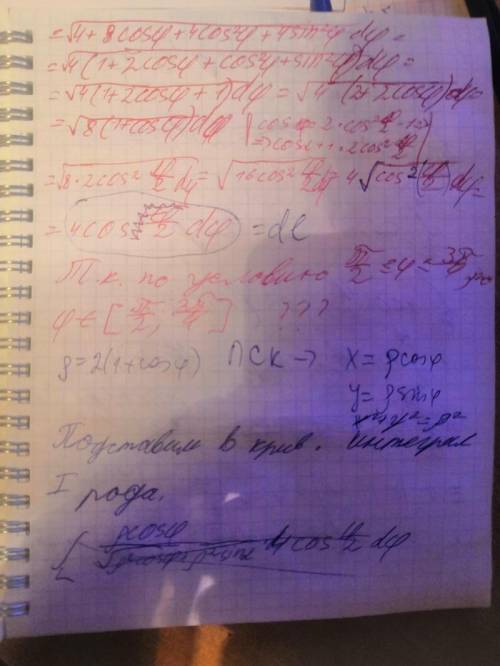 =√4+8cosφ+4cos²φ+4sin²φ dφ=
=√4(1+2cosφ+cos²φ+sin²φ)dφ=
=√4(1+2cosφ+1)dφ=√4(2+2cosφ)dφ=
=√8(1+cosφ)dφ | cosφ=2·cos²φ/2-1=> =>cosφ+1=2cos²φ/2
=√8·2cos²φ/2 dφ=√16cos²φ/2 dφ=4√cos²(φ/2)dφ=
=4cosφ/2 dφ =dl
Т.к. по условию π/2≤φ≤3π/2, то
φ∈[π/2, 3π/2] ???
ρ=2(1+cosφ) ПСК → x=ρcosφ
y=ρsinφ
x²+y²=ρ²
Подставим в крив. интеграл
I рода.
∫ ρcosφ 4cosφ/2 dφ